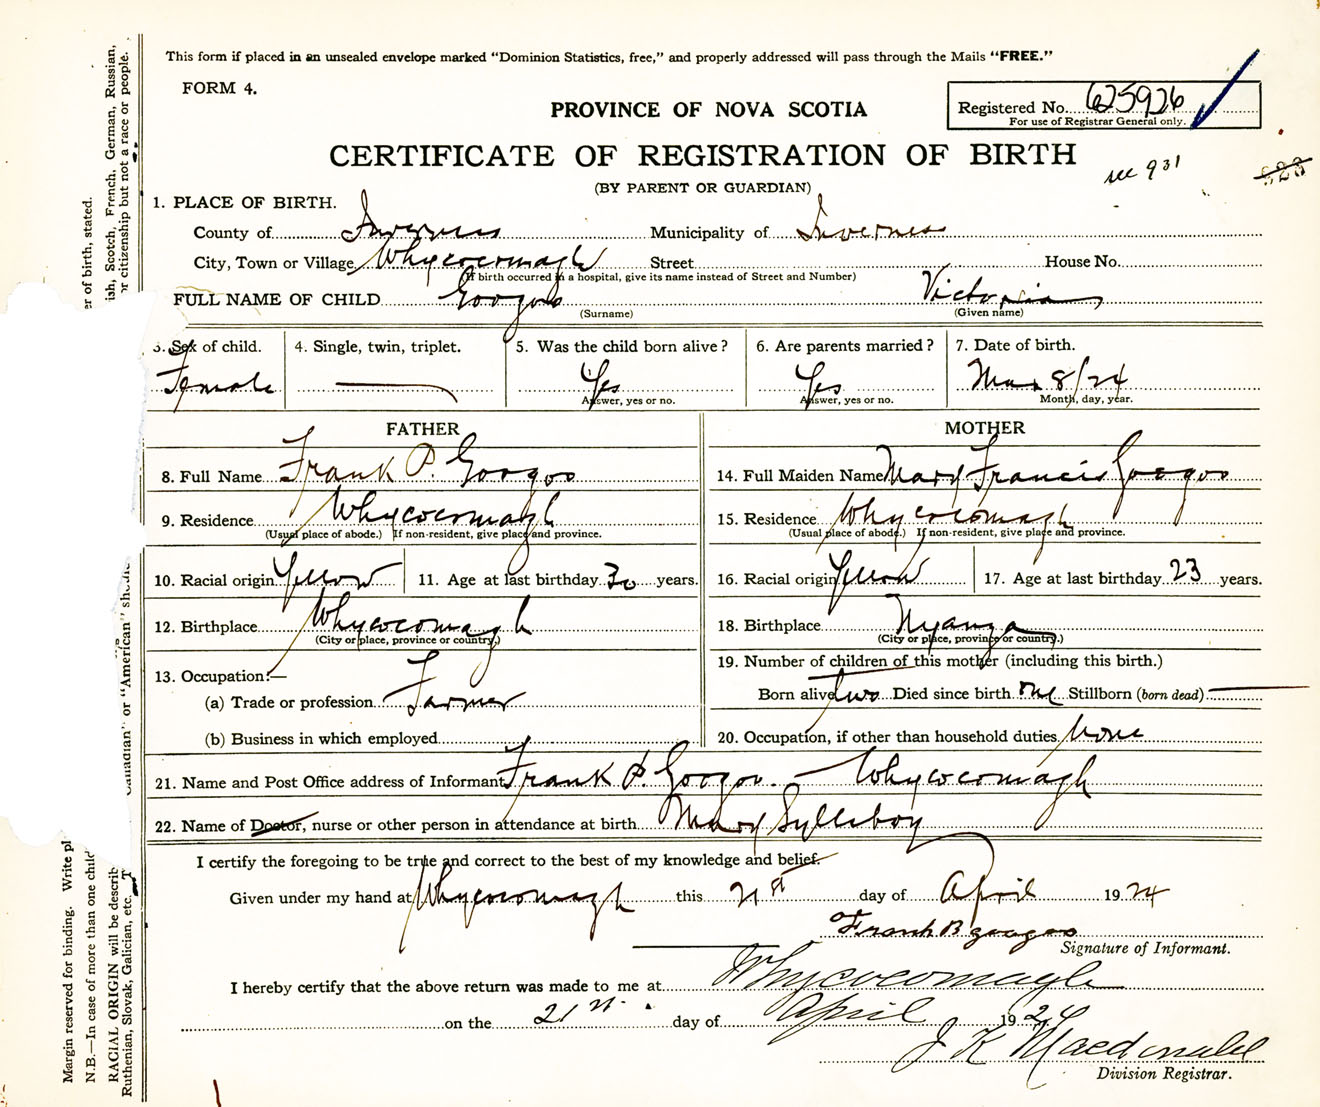 This form if placed in an unsealed envelope marked “Dominion Statistics, free,” and properly addressed will pass through the Mails “FREE.”
FORM 4.
Registered No. 625926
For use of Registrar General only.
PROVINCE OF NOVA SCOTIA
CERTIFICATE OF REGISTRATION OF BIRTH
(BY PARENT OR GUARDIAN)
931
1. PLACE OF BIRTH.
County of Inverness Municipality of Inverness
City, Town or Village Whycocomagh Street House No.
(If birth occurred in a hospital, give its name instead of Street and Number)
FULL NAME OF CHILD Googoo Victoria
(Surname) (Given name)
3. Sex of child. 4. Single, twin, triplet. 5. Was the child born alive? 6. Are parents married? 7. Date of birth.
Female — Yes Yes Mar 8/24
Answer, yes or no. Answer, yes or no. Month, day, year.
FATHER
8. Full Name Frank P. Googoo
9. Residence Whycocomagh
(Usual place of abode.) If non-resident, give place and province.
10. Racial origin Yellow 11. Age at last birthday 30 years.
12. Birthplace Whycocomagh
(City or place, province or country.)
13. Occupation:—
(a) Trade or profession Farmer
(b) Business in which employed
MOTHER
14. Full Maiden Name Mary Francis Googoo
15. Residence Whycocomagh
(Usual place of abode.) If non-resident, give place and province.
16. Racial origin Yellow 17. Age at last birthday 23 years.
18. Birthplace Nyanza
(City or place, province or country.)
19. Number of children of this mother (including this birth.)
Born alive two Died since birth one Stillborn (born dead) —
20. Occupation, if other than household duties None
21. Name and Post Office address of Informant Frank P. Googoo. — Whycocomagh
22. Name of Doctor, nurse or other person in attendance at birth Mary Sylleboy
I certify the foregoing to be true and correct to the best of my knowledge and belief.
Given under my hand at Whycocomagh this 21st day of April 1924
Frank B googoo
Signature of Informant.
I hereby certify that the above return was made to me at Whycocomagh
on the 21st day of April 1924
J K Macdonald
Division Registrar.
Margin reserved for binding. Write pl
N.B.—In case of more than one child
er of birth, stated.
RACIAL ORIGIN will be describ
ish, Scotch, French, German, Russian,
Ruthenian, Slovak, Galician, etc. T
"Canadian" or "American"
or citizenship but not a race or people.